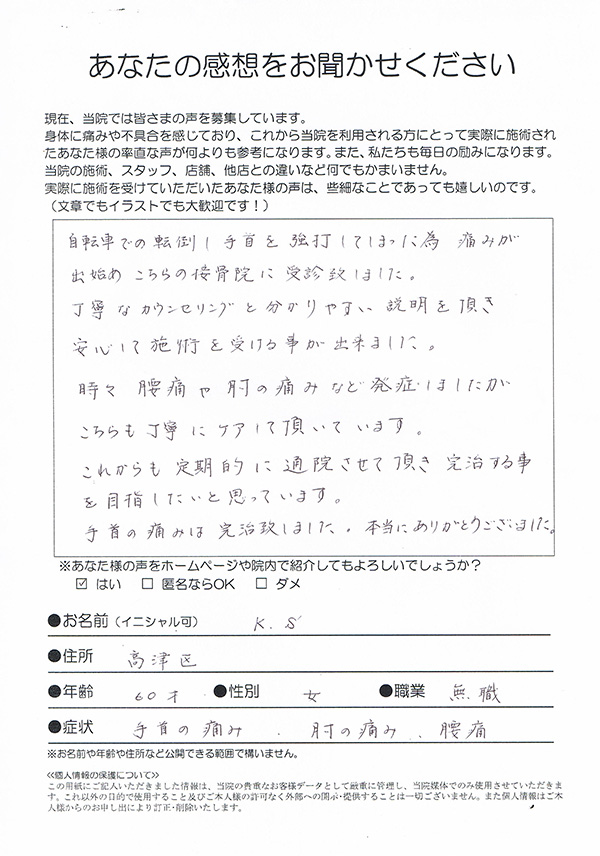 あなたの感想をお聞かせください
現在、当院では皆さまの声を募集しています。
身体に痛みや不具合を感じており、これから当院を利用される方にとって実際に施術され
たあなた様の率直な声が何よりも参考になります。また、私たちも毎日の励みになります。
当院の施術、スタッフ、店舗、他店との違いなど何でもかまいません。
実際に施術を受けていただいたあなた様の声は、些細なことであっても嬉しいのです。
（文章でもイラストでも大歓迎です！）
自転車での転倒し手首を強打してしまった為 痛みが
出始め こちらの接骨院に受診致しました。
丁寧なカウンセリングと分かりやすい説明を頂き
安心して施術を受ける事が出来ました。
時々 腰痛や肘の痛みなど発症しましたが
こちらも丁寧にケアして頂いています。
これからも定期的に通院させて頂き 完治する事
を目指したいと思っています。
手首の痛みは完治致しました。本当にありがとうございました。
※あなた様の声をホームページや院内で紹介してもよろしいでしょうか？
☑ はい □ 匿名ならOK □ ダメ
●お名前（イニシャル可） K.S
●住所 高津区
●年齢 60才 ●性別 女 ●職業 無職
●症状 手首の痛み、肘の痛み、腰痛
※お名前や年齢や住所など公開できる範囲で構いません。
≪個人情報の保護について≫
この用紙にご記入いただきました情報は、当院の貴重なお客様データとして厳重に管理し、当院媒体でのみ使用させていただきま
す。これ以外の目的で使用すること及びご本人様の許可なく外部への開示・提供することは一切ございません。また個人情報はご本
人様からのお申し出により訂正・削除いたします。